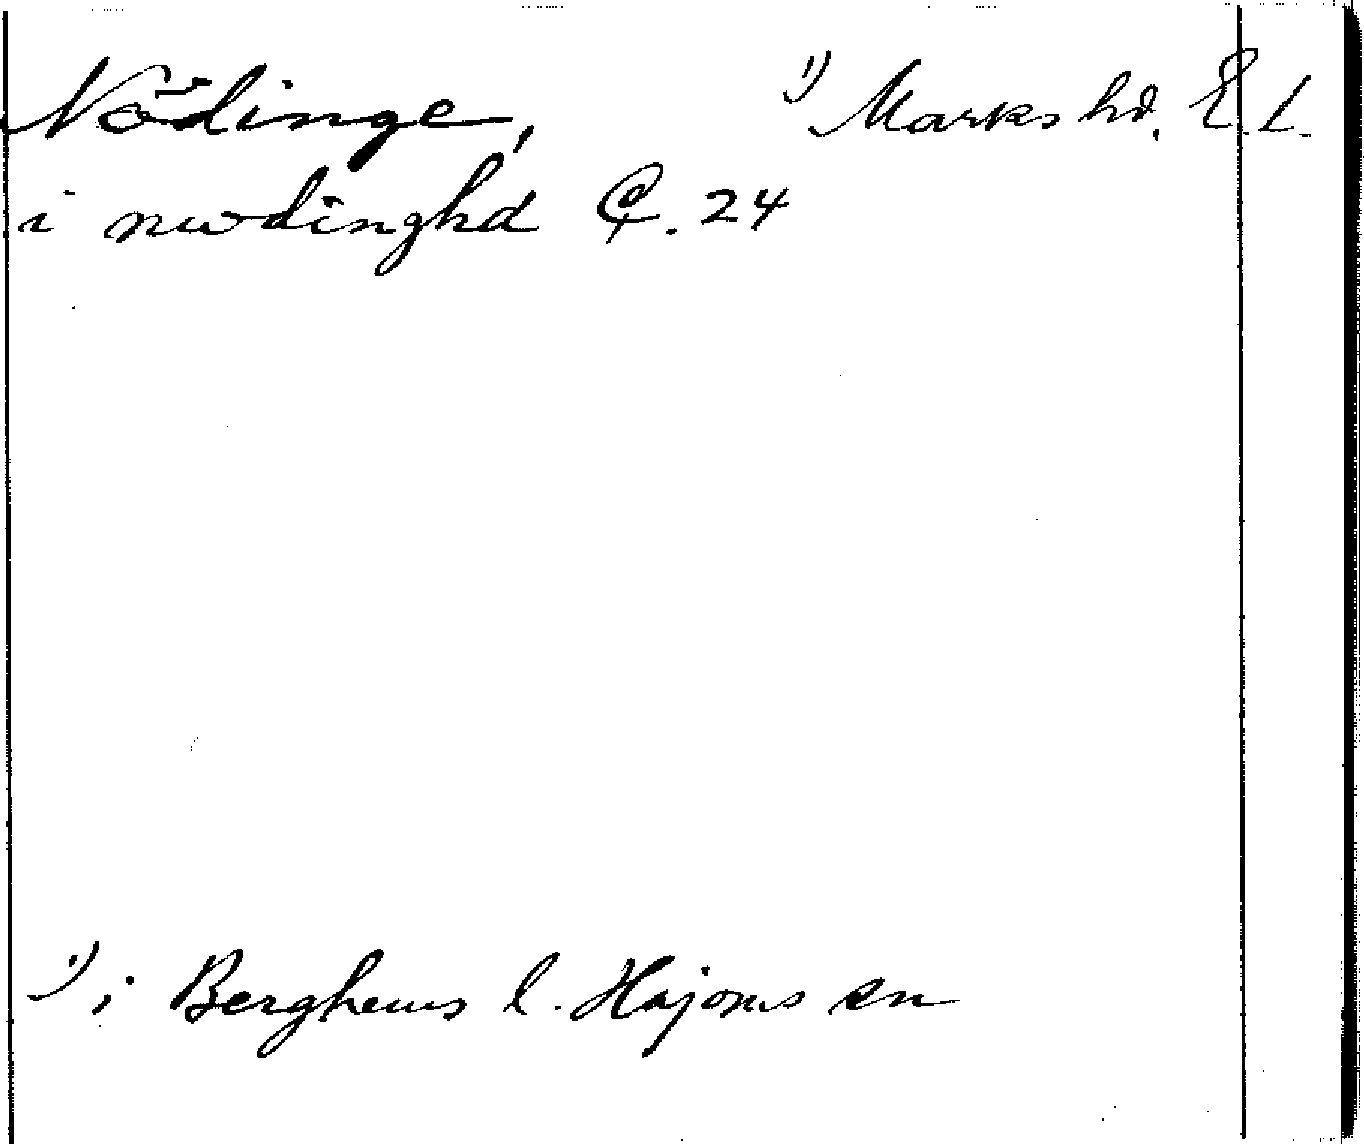 Nödinge, ¹) Marks hd. Ä. L.
i nwdinghd C. 24
¹) i Berghems l. Hajoms sn